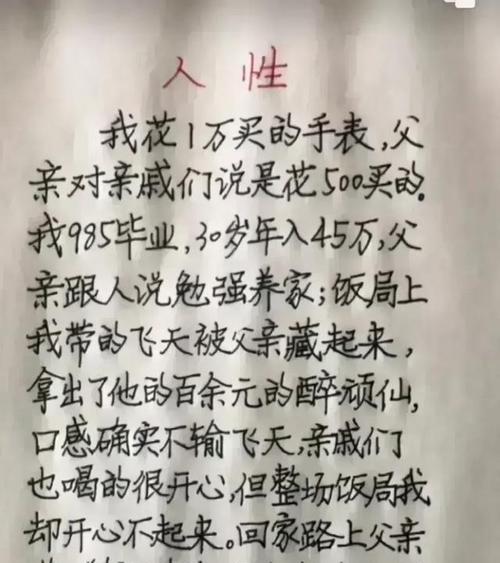 人性
我花1万买的手表,父
亲对亲戚们说是花500买的.
我985毕业,30岁年入45万,父
亲跟人说勉强养家;饭局上
我带的飞天被父亲藏起来,
拿出了他的百余元的醉顽仙,
口感确实不输飞天,亲戚们
也喝的很开心,但整场饭局我
却开心不起来。回家路上父亲